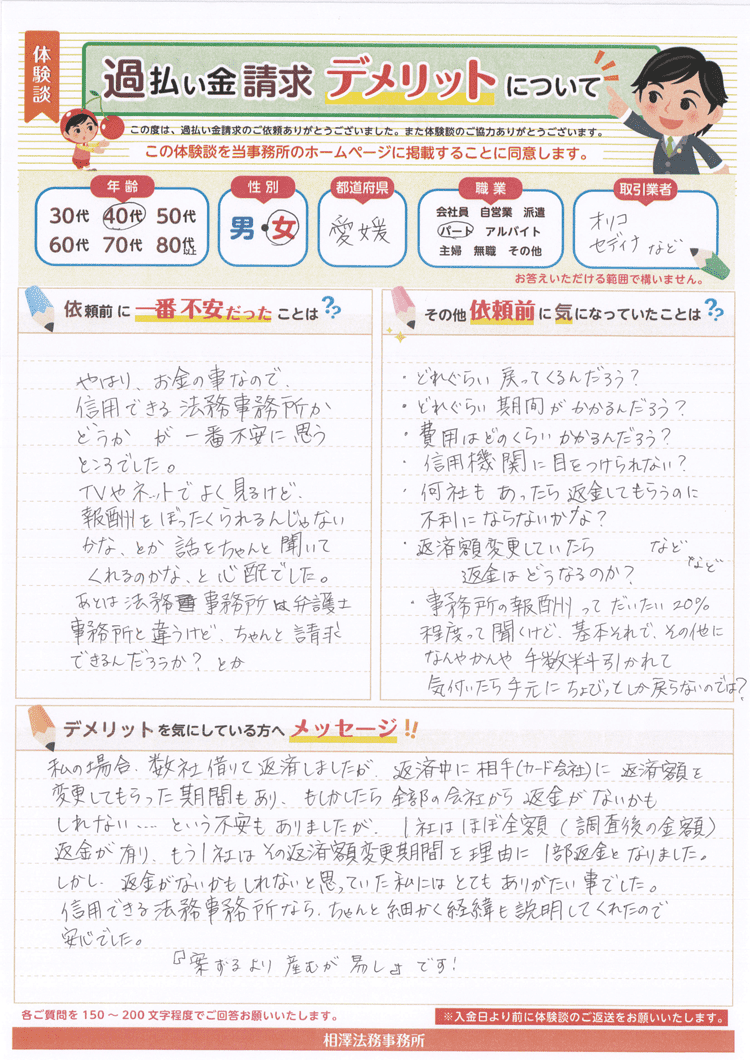 体験談
過払い金請求 デメリットについて
この度は、過払い金請求のご依頼ありがとうございました。また体験談のご協力ありがとうございます。
この体験談を当事務所のホームページに掲載することに同意します。
年齢
30代 40代 50代
60代 70代 80代以上
性別
男・女
都道府県
愛媛
職業
会社員 自営業 派遣
パート アルバイト
主婦 無職 その他
取引業者
オリコ
セディナ など
お答えいただける範囲で構いません。
依頼前に一番不安だったことは??
やはり、お金の事なので、
信用できる法務事務所か
どうか が 一番不安に思う
ところでした。
TVやネットでよく見るけど、
報酬をぼったくられるんじゃない
かな、とか 話をちゃんと聞いて
くれるのかな、と心配でした。
あとは法務事務所は弁護士
事務所と違うけど、ちゃんと請求
できるんだろうか? とか
その他依頼前に気になっていたことは??
・どれぐらい戻ってくるんだろう?
・どれぐらい期間がかかるんだろう?
・費用はどのくらいかかるんだろう?
・信用機関に目をつけられない?
・何社もあったら返金してもらうのに
不利にならないかな?
・返済額変更していたら など
返金はどうなるのか? など
・事務所の報酬ってだいたい20%
程度って聞くけど、基本それで、その他に
なんやかんや手数料引かれて
気付いたら手元にちょびっとしか戻らないのでは?
デメリットを気にしている方へメッセージ!!
私の場合、数社借りて返済しましたが、返済中に相手(カード会社)に返済額を
変更してもらった期間もあり、もしかしたら全部の会社から返金がないかも
しれない…… という不安もありましたが、1社はほぼ全額(調査後の金額)
返金が有り、もう1社はその返済額変更期間を理由に1部返金となりました。
しかし、返金がないかもしれないと思っていた私にはとてもありがたい事でした。
信用できる法務事務所なら、ちゃんと細かく経緯も説明してくれたので
安心でした。
『案ずるより産むが易し』です!
各ご質問を150〜200文字程度でご回答お願いいたします。
※入金日より前に体験談のご返送をお願いいたします。
相澤法務事務所